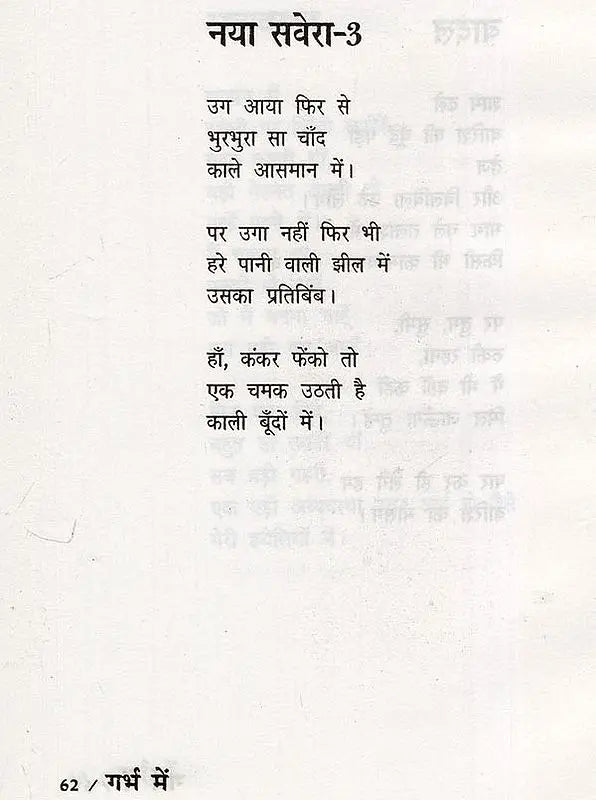 नया सवेरा-3
उग आया फिर से
भुरभुरा सा चाँद
काले आसमान में।
पर उगा नहीं फिर भी
हरे पानी वाली झील में
उसका प्रतिबिंब।
हाँ, कंकर फेंको तो
एक चमक उठती है
काली बूँदों में।
62 / गर्भ में